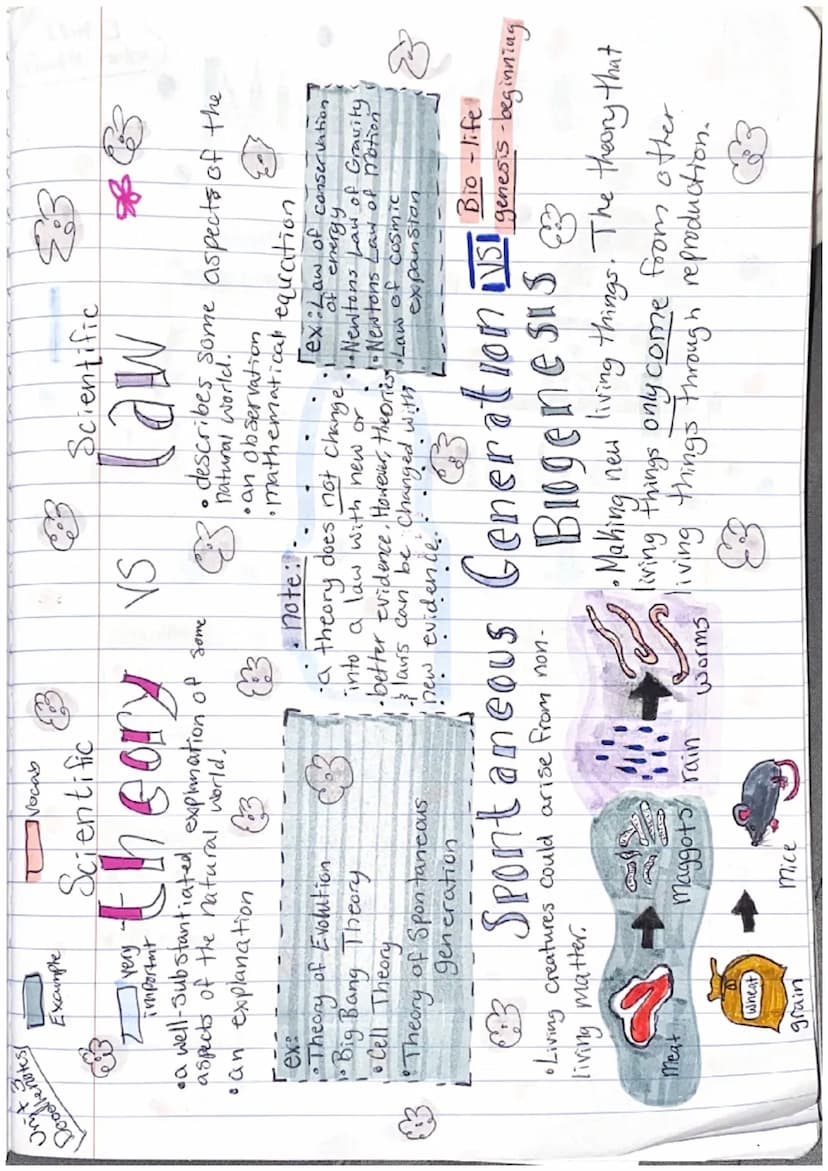 Unit 3
Doodle notes
Example
Vocab
very
important
Scientific
theory
VS
Scientific
law
• a well-substantiated explanation of some
aspects of the natural world.
• an explanation
• describes some aspects of the
natural world.
• an observation
• mathematical equation
ex:
• Theory of Evolution
• Big Bang Theory
• Cell Theory
• Theory of Spontaneous
generation
note:
• a theory does not change
into a law with new or
better evidence. However, theories
& laws can be changed with
new evidence.
ex: Law of conservation
of energy
• Newtons Law of Gravity
• Newtons Law of Motion
• Law of cosmic
expansion
Spontaneous Generation VS
Biogenesis
Bio - life
genesis - beginning
• Living creatures could arise from non-
living matter.
Meat
Maggots
rain
worms
wheat
grain
Mice
• Making new living things. The theory that
living things only come from other
living things through reproduction.